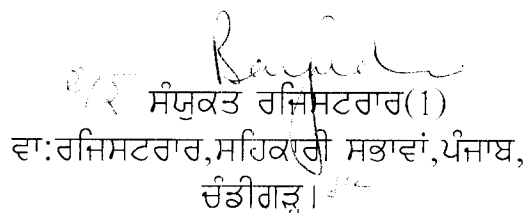 ਸੰਯੁਕਤ ਰਜਿਸਟਰਾਰ(1)
ਵਾ:ਰਜਿਸਟਰਾਰ,ਸਹਿਕਾਰੀ ਸਭਾਵਾਂ,ਪੰਜਾਬ,
ਚੰਡੀਗੜ੍ਹ।